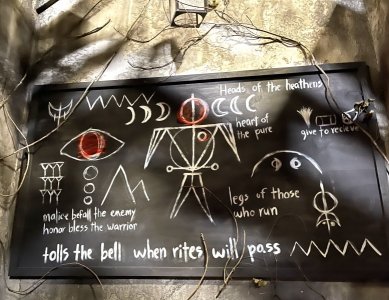 Heads of the heathens
heart of
the pure
give to recieve
legs of those
who run
malice befall the enemy
honor bless the warrior
tolls the bell when rites will pass